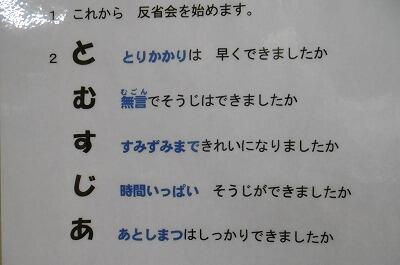 1 これから 反省会を始めます。
2 と とりかかりは 早くできましたか
む 無言でそうじはできましたか
す すみずみまできれいになりましたか
じ 時間いっぱい そうじができましたか
あ あとしまつはしっかりできましたか